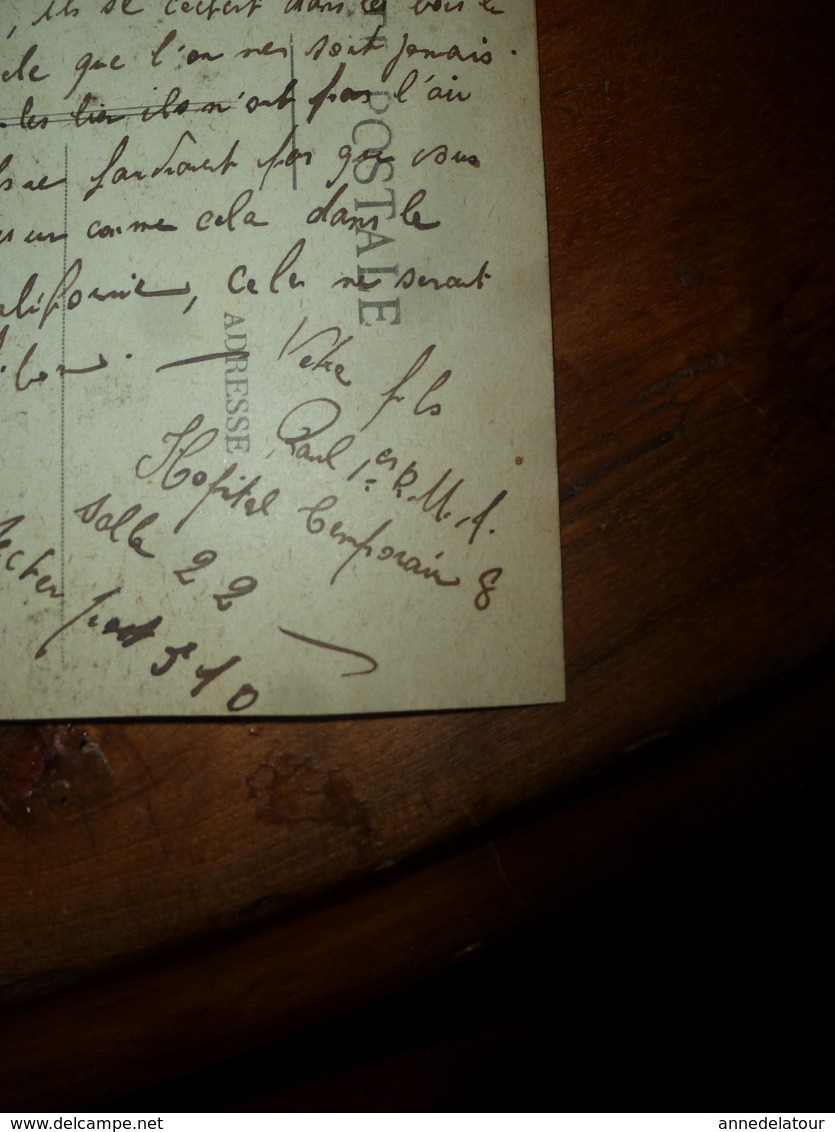 , ils se cachent dans les bois le
que l'on ne sont jamais.
les lier ils n'ont pas l'air
ne faudrait pas que vous
un comme cela dans le
alifornie, cela ne serait
bon. — Votre fils
Paul 1er R.M.A.
Hopital temporaire 8
Salle 22
Secteur post 510
POSTALE
ADRESSE
www.delcampe.net
annedelatour